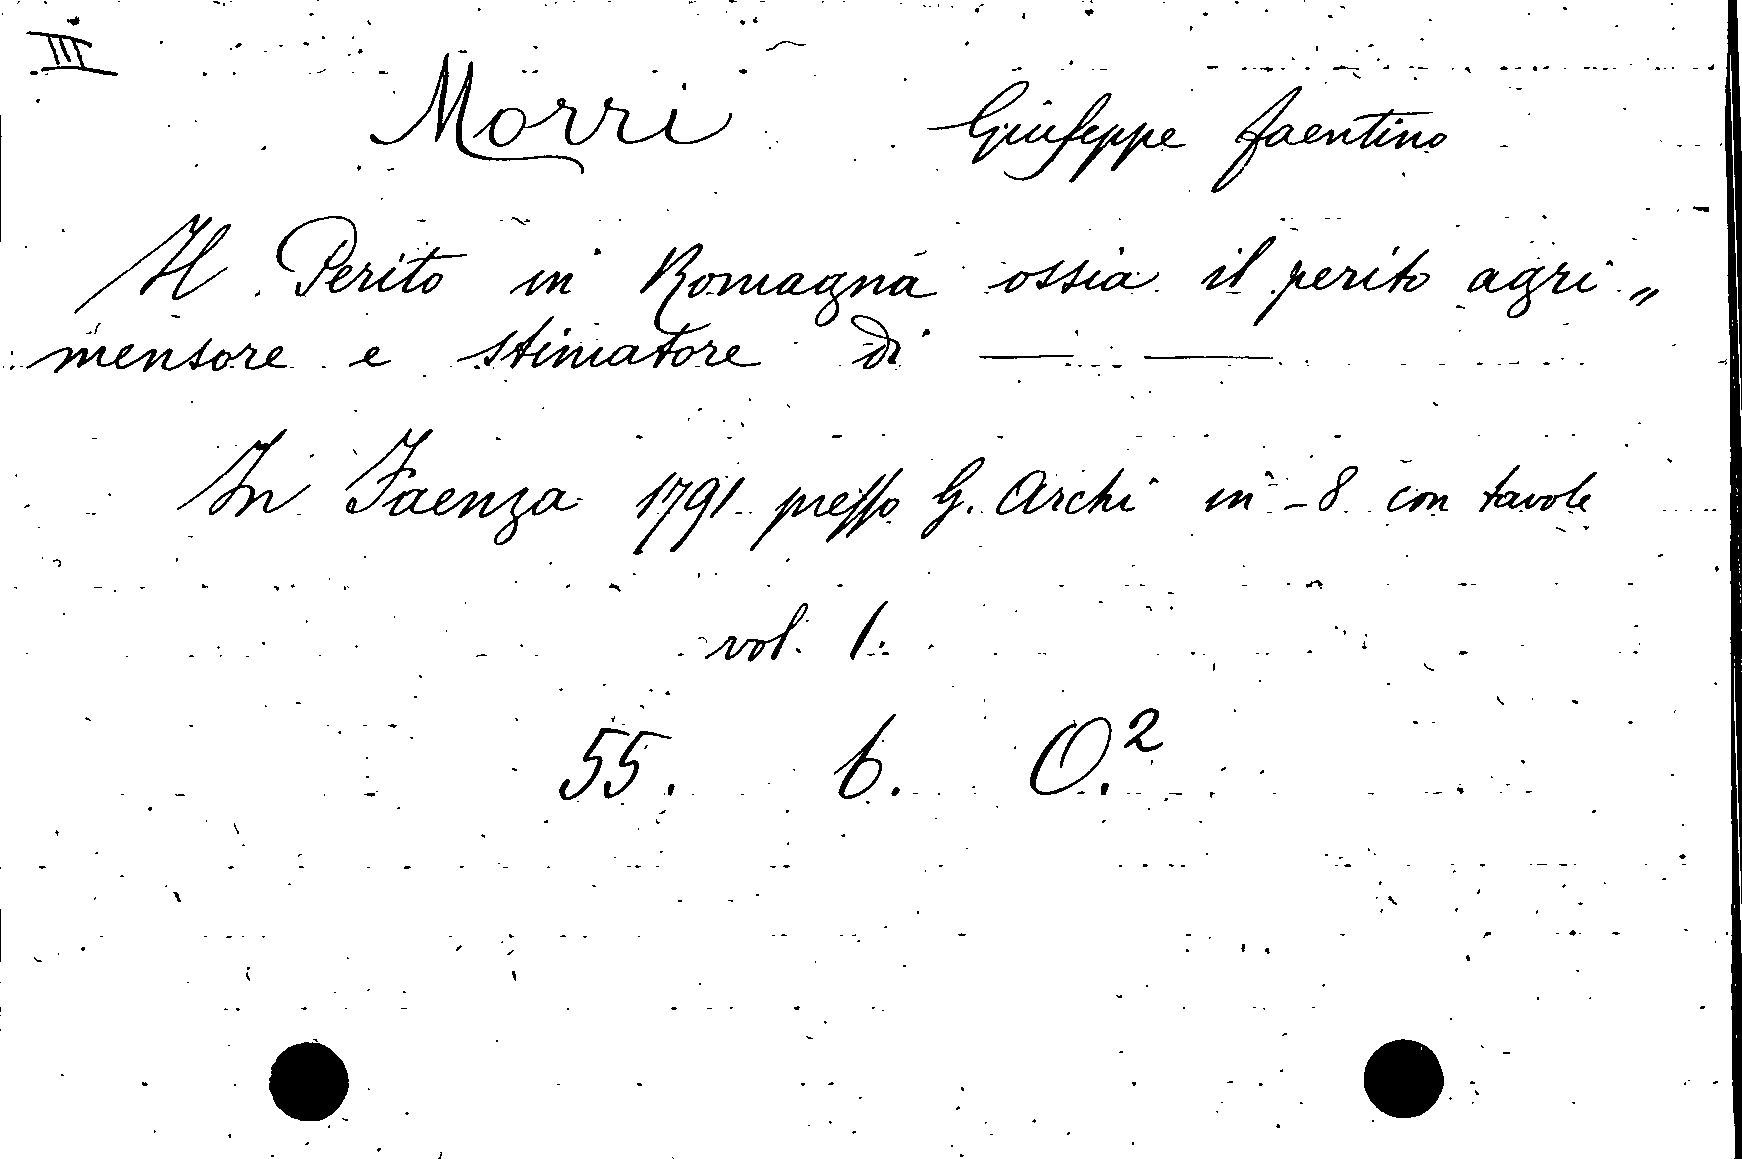 III
Morri Giuseppe faentino
Il Perito in Romagna ossia il perito agri„
mensore e stimatore di —— ——
In Faenza 1791 presso G. Archi in-8 con tavole
vol. 1.
55. 6. O.²